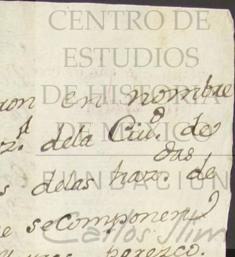 CENTRO DE
ESTUDIOS
DE HISTORIA
DE MÉXICO
FUNDACIÓN
Carlos Slim
en nombre
dela Ciu.^d de
delas haz.^das de
secomponen
parezco.